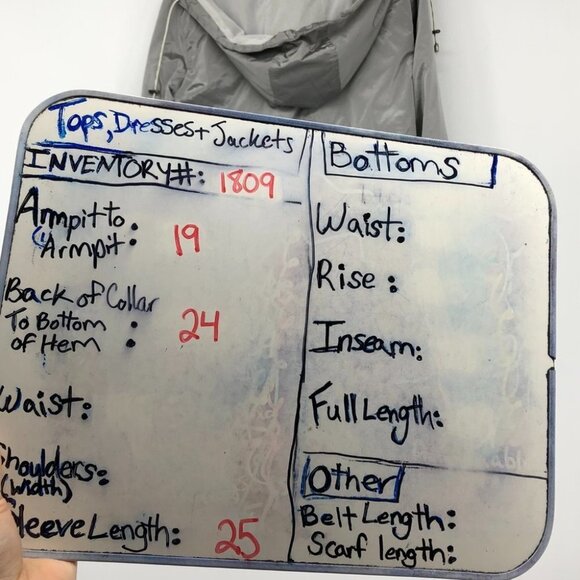 Tops, Dresses + Jackets
INVENTORY#: 1809
Armpit to
Armpit: 19
Back of Collar
To Bottom
of Hem : 24
Waist:
Shoulders:
(width)
Sleeve Length: 25
Bottoms
Waist:
Rise :
Inseam:
Full Length:
Other
Belt Length:
Scarf length: